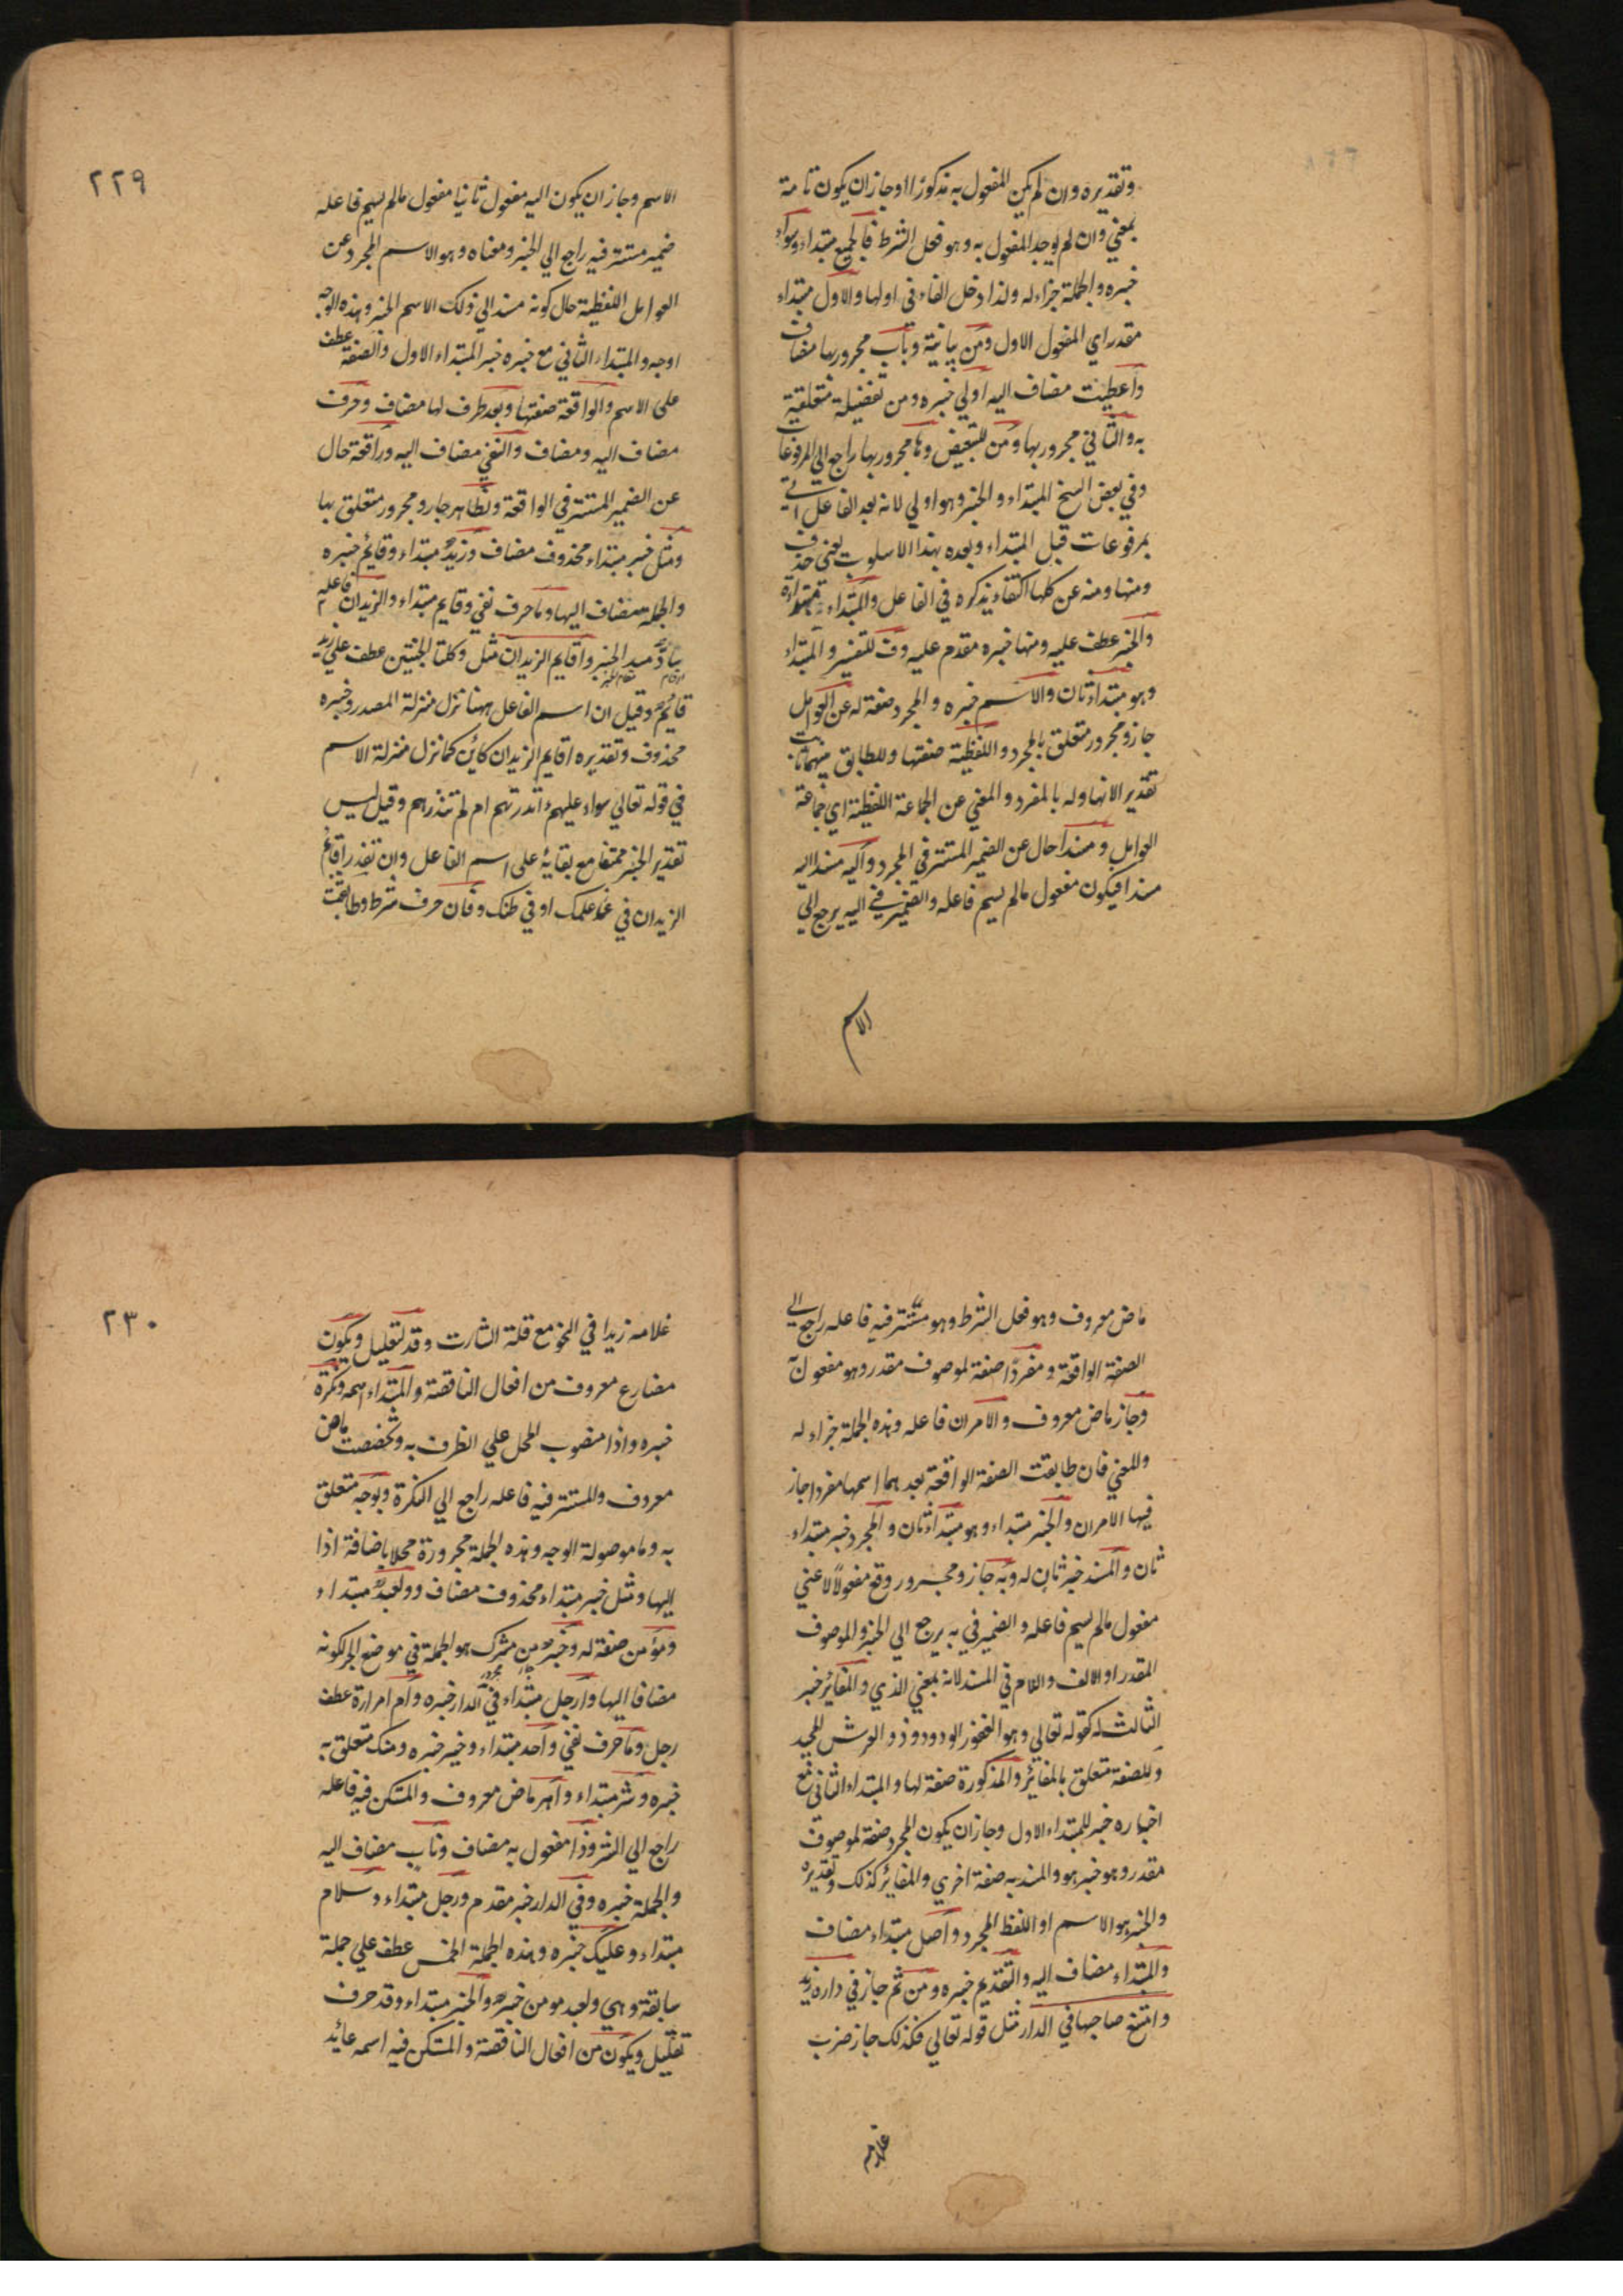 وتقديره وان لم يكن المفعول به مذكورا اوجاز ان يكون تامة
بمعني وان لم يوجد المفعول به وهو فعل الشرط فالجميع مبتداء وسواء
خبره والجملة جزاء له ولذا دخل الفاء في اولها والاول مبتداء
مقدر اي المفعول الاول ومن بيانية وباب مجرور بها مضاف
واعطيت مضاف اليه اولي خبره ومن تفضيلة متعلقية
به والثاني مجرور بها ومن للتبعيض وها مجرور بها راجع الي المرفوعات
وفي بعض النسخ المبتداء والخبر وهو اولي لانه بعد الفاعل
بمرفوعات قبل المبتداء وبعده بهذا الاسلوب يعني حذف
ومنها ومنه عن كلها اكتفاء بذكره في الفاعل والمبتداء
والخبر عطف عليه ومنها خبره مقدم عليه وف للتفسير والمبتداء
وهو مبتداء ثان والاسم خبره والمجرد صفة له عن العوامل
جار ومجرور متعلق بالمجرد واللفظية صفتها وللطابق بينهما ثابت
تقدير الانها وله بالمفرد والمعني عن الجماعة اللفظية اي جماعة
العوامل ومسندا حال عن الضمير المستتر في المجرد واليه مسند اليه
مسندا فيكون مفعول مالم يسم فاعله والضمير في اليه يرجع الي
الاسم
٢٢٩
الاسم وجاز ان يكون اليه مفعول ثانيا مفعول مالم يسم فاعله
ضمير مستتر فيه راجع الي الخبر ومعناه وهو الاسم المجرد عن
العوامل اللفظية حال كونه مسند الي ذلك الاسم الخبر وهذه الوجه
اوجه والمبتداء الثاني مع خبره خبر المبتداء الاول والصفة عطف
علي الاسم والواقعة صفتها وبعد ظرف لها مضاف وحرف
مضاف اليه ومضاف والنفي مضاف اليه ورافعة حال
عن الضمير المستتر في الواقعة ولظاهر جار ومجرور متعلق بها
ومثل خبر مبتداء محذوف مضاف وزيد مبتداء وقايم خبره
والجملة مضاف اليها وما حرف نفي وقايم مبتداء والزيدان فاعله
ساد مسد الخبر واقايم الزيدان مثل وكلتا الجنتين عطف علي زيد
قايم وقيل ان اسم الفاعل ههنا نزل منزلة المصدر وخبره
محذوف وتقديره اقايم الزيدان كائن كما نزل منزلة الاسم
في قوله تعالي سواء عليهم ءانذرتهم ام لم تنذرهم وقيل ليس
تقدير الخبر ممتنعا مع بقايه علي اسم الفاعل وان تقدر اقايم
الزيدان في علمك او في ظنك وفان حرف شرط وطابقت
ماض معروف وهو فعل الشرط وهو مستتر فيه فاعله راجع الي
الصفة الواقعة ومفردا صفة لموصوف مقدر وهو مفعول
وجاز ماض معروف والامران فاعله وهذه الجملة جزاء له
وللمعني فان طابقت الصفة الواقعة بعد هما اسمها مفردا جاز
فيها الامران والخبر مبتداء وهو مبتداء ثان والمجرد خبر مبتداء
ثان والمسند خبر ثان له وبه جار ومجرور وقع مفعولا لاعني
مفعول مالم يسم فاعله والضمير في به يرجع الي الخبر والموصوف
المقدر او الالف واللام في المسند لانه بمعني الذي والمغاير خبر
الثالث له كقوله تعالي وهو الغفور الودود ذو العرش المجيد
وللصفة متعلق بالمغاير والمذكورة صفة لها والمبتداء الثاني مع
اخباره خبر للمبتداء الاول وجاز ان يكون المجرد صفة لموصوف
مقدر وهو خبر هو والمسند به صفة اخري والمغاير كذلك وتقديره
والخبر هو الاسم او اللفظ المجرد واصل مبتداء مضاف
والمبتداء مضاف اليه والتقديم خبره ومن ثم جاز في داره زيد
وامتنع صاحبها في الدار مثل قوله تعالي فكذلك جاز ضرب
غلامه
٢٣٠
غلامه زيدا في النحو مع قلة الثارت وقد لتعليل ويكون
مضارع معروف من افعال الناقصة والمبتداء اسمه ونكرة
خبره واذا منصوب المحل علي الظرف به وتخصصت ماض
معروف والمستتر فيه فاعله راجع الي النكرة وبوجه متعلق
به وما موصولة الوجه وهذه الجملة مجرورة محلا باضافة اذا
اليها ومثل خبر مبتداء محذوف مضاف وولعبد مبتداء
ومؤمن صفة له وخير من مشرك هو الجملة في موضع الجر لكونه
مضافا اليها وارجل مبتداء في الدار خبره وام امراة عطف
رجل وما حرف نفي واحد مبتداء وخير خبره ومنك متعلق به
خبره وشر مبتداء واهر ماض معروف والمتكن فيه فاعله
راجع الي الشر وذا مفعول به مضاف وناب مضاف اليه
والجملة خبره وفي الدار خبر مقدم ورجل مبتداء وسلام
مبتداء وعليك خبره وهذه الجملة الخمس عطف علي جملة
سابقة وهي ولعبد مومن خبره والخبر مبتداء وقد حرف
تقليل ويكون من افعال الناقصة والمتكن فيه اسمه عائد